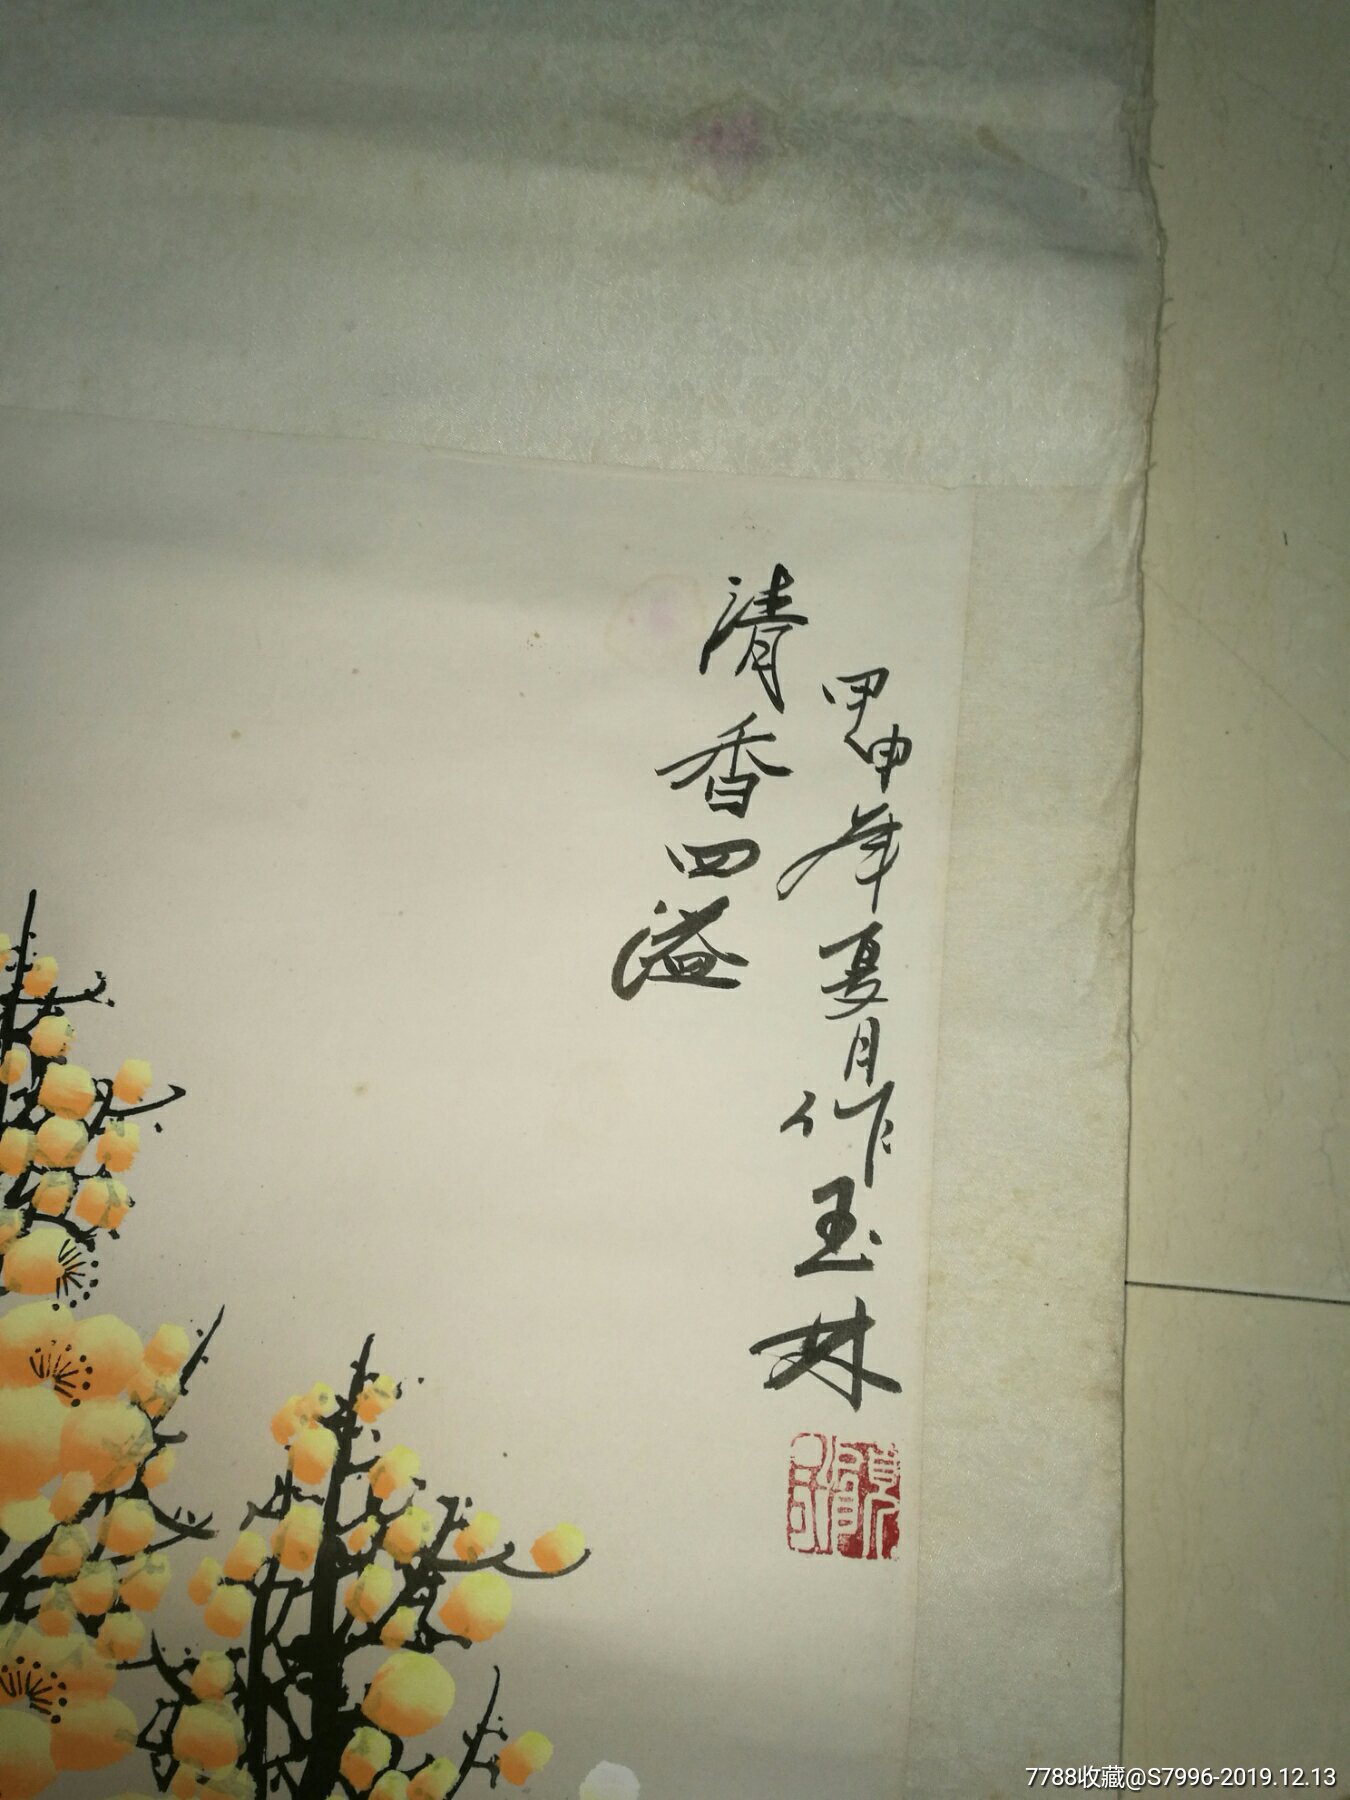 清香四溢
甲申年夏月作玉林
7788收藏@S7996-2019.12.13